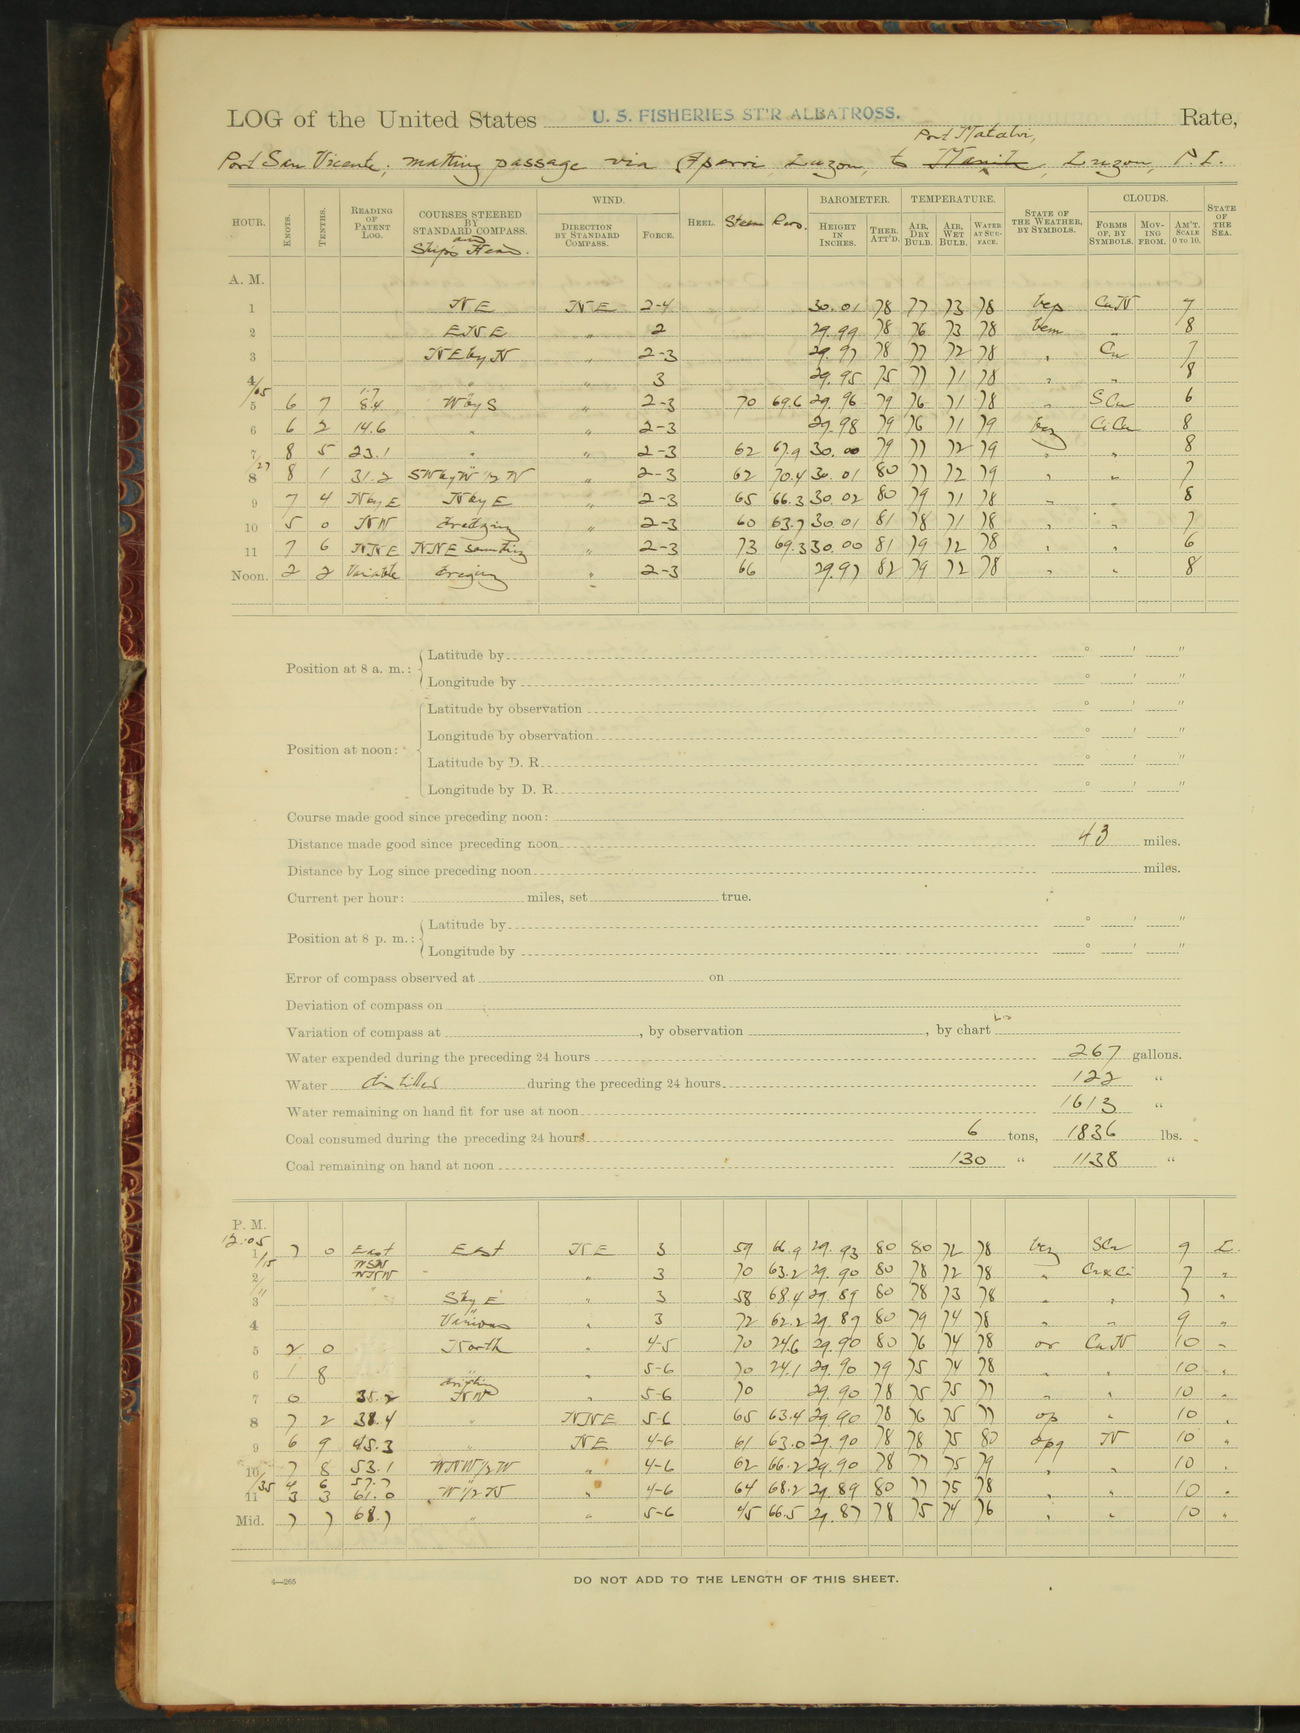 LOG of the United States U. S. FISHERIES ST'R ALBATROSS. Rate,
Port Matalvi,
Port San Vicente, making passage via Aparri, Luzon, to Manila, Luzon, P. I.
HOUR. KNOTS. TENTHS. READING OF PATENT LOG. COURSES STEERED BY STANDARD COMPASS. and Ship's Head. WIND. DIRECTION BY STANDARD COMPASS. FORCE. HEEL. Steam Revs. BAROMETER. HEIGHT IN INCHES. THER. ATT'D. TEMPERATURE. AIR, DRY BULB. AIR, WET BULB. WATER AT SURFACE. STATE OF THE WEATHER, BY SYMBOLS. CLOUDS. FORMS OF, BY SYMBOLS. MOVING FROM. AM'T. SCALE 0 TO 10. STATE OF THE SEA.
A. M.
1 NE NE 2-4 30.01 78 77 73 78 bcp CuN 7
2 ENE " 2 29.99 78 76 73 78 bcm " 8
3 NE by N " 2-3 29.97 78 77 72 78 " Cu 7
4 " " 3 29.95 75 77 71 78 " " 8
/05 1.7
5 6 7 8.4 W by S " 2-3 70 69.6 29.96 79 76 71 78 " S Cu 6
6 6 2 14.6 " " 2-3 29.98 79 76 71 79 bcz Ci Cu 8
7 8 5 23.1 " " 2-3 62 67.9 30.00 79 77 72 79 " " 8
/27
8 8 1 31.2 SW by W 1/2 W " 2-3 62 70.4 30.01 80 77 72 79 " " 7
9 7 4 N by E N by E " 2-3 65 66.3 30.02 80 79 71 78 " " 8
10 5 0 NW Dredging " 2-3 60 63.7 30.01 81 78 71 78 " " 7
11 7 6 NNE NNE sounding " 2-3 73 69.3 30.00 81 79 72 78 " " 6
Noon. 2 2 Variable Dredging " 2-3 66 29.97 82 79 72 78 " " 8
Position at 8 a. m.: Latitude by ° ' "
Longitude by ° ' "
Position at noon: Latitude by observation ° ' "
Longitude by observation ° ' "
Latitude by D. R. ° ' "
Longitude by D. R. ° ' "
Course made good since preceding noon:
Distance made good since preceding noon 43 miles.
Distance by Log since preceding noon miles.
Current per hour: miles, set true.
Position at 8 p. m.: Latitude by ° ' "
Longitude by ° ' "
Error of compass observed at on
Deviation of compass on
Variation of compass at , by observation , by chart
Water expended during the preceding 24 hours 267 gallons.
Water distilled during the preceding 24 hours 122 "
Water remaining on hand fit for use at noon 1613 "
Coal consumed during the preceding 24 hours 6 tons, 1836 lbs.
Coal remaining on hand at noon 130 " 1138 "
P. M.
12:05
1 7 0 East East NE 3 59 66.9 29.93 80 80 72 78 bcz SCu 9 L.
/15 WSW
2 WNW " 3 70 63.2 29.90 80 78 72 78 " Cu & Ci 7 "
3 S by E " 3 58 68.4 29.89 80 78 73 78 " " 7 "
4 Various " 3 72 62.2 29.89 80 79 74 78 " " 9 "
5 2 0 North " 4-5 70 24.6 29.90 80 76 74 78 or CuN 10 "
6 1 8 " " 5-6 70 24.1 29.90 79 75 74 78 " " 10 "
drifting
7 0 35.2 NW " 5-6 70 29.90 78 75 75 77 " " 10 "
8 7 2 38.4 " NNE 5-6 65 63.4 29.90 78 76 75 77 op " 10 "
9 6 9 45.3 " NE 4-6 61 63.0 29.90 78 78 75 80 opq N 10 "
10 7 8 53.1 WNW 1/2 W " 4-6 62 66.2 29.90 78 77 75 79 " " 10 "
/35 4 6 57.7 "
11 3 3 61.0 W 1/2 N " 4-6 64 68.2 29.89 80 77 75 78 " " 10 "
Mid. 7 7 68.7 " " 5-6 45 66.5 29.87 78 75 74 76 " " 10 "
4—265
DO NOT ADD TO THE LENGTH OF THIS SHEET.